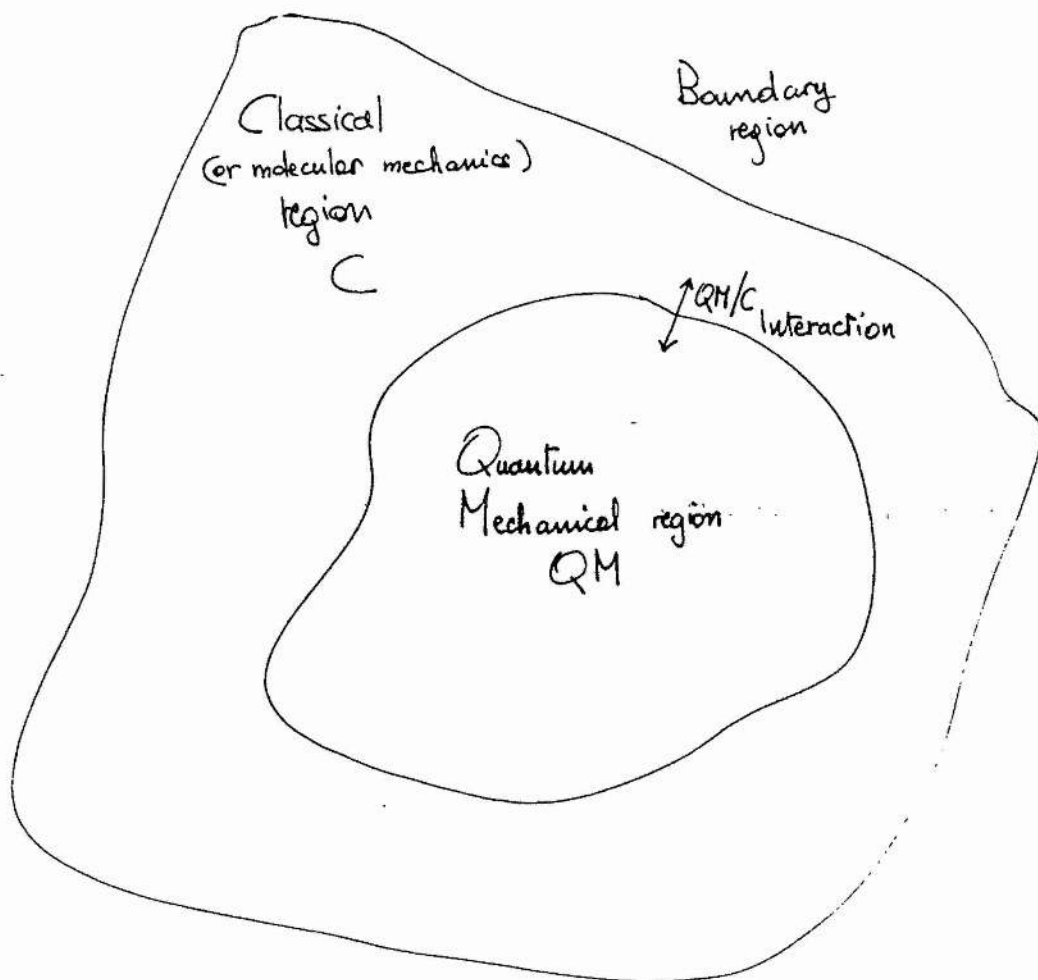 Classical
(or molecular mechanics)
region
C
Boundary
region
QM/C
Interaction
Quantum
Mechanical region
QM